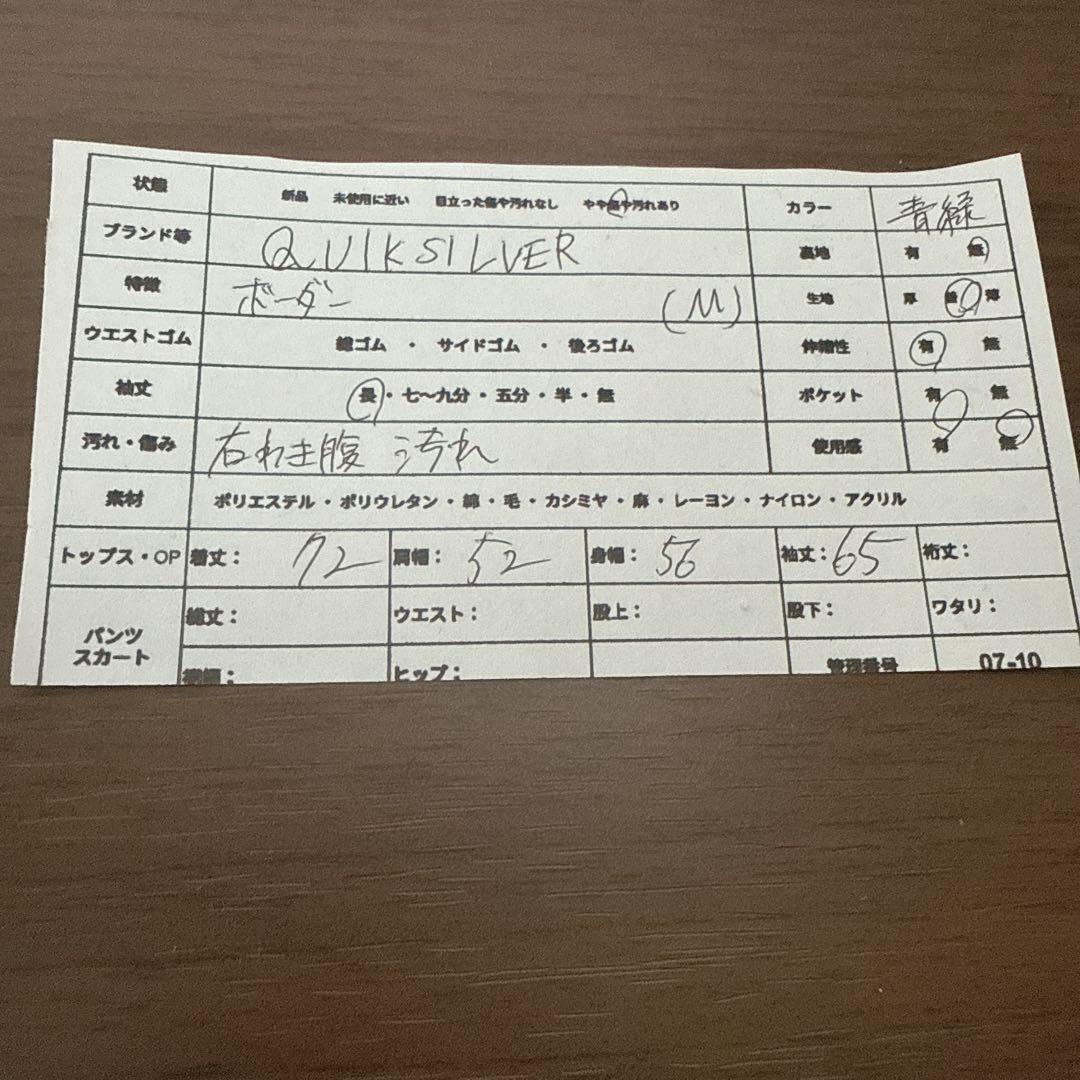 状態 新品 未使用に近い 目立った傷や汚れなし やや傷や汚れあり カラー 青緑
ブランド等 QUIKSILVER 裏地 有 無
特徴 ボーダー (M) 生地 厚 普 薄
ウエストゴム 総ゴム ・ サイドゴム ・ 後ろゴム 伸縮性 有 無
袖丈 長・七〜九分・五分・半・無 ポケット 有 無
汚れ・傷み 右わき腹 汚れ 使用感 有 無
素材 ポリエステル・ポリウレタン・綿・毛・カシミヤ・麻・レーヨン・ナイロン・アクリル
トップス・OP 着丈: 72 肩幅: 52 身幅: 56 袖丈: 65 裄丈:
パンツ スカート 総丈: ウエスト: 股上: 股下: ワタリ:
裾幅: ヒップ: 管理番号 07-10